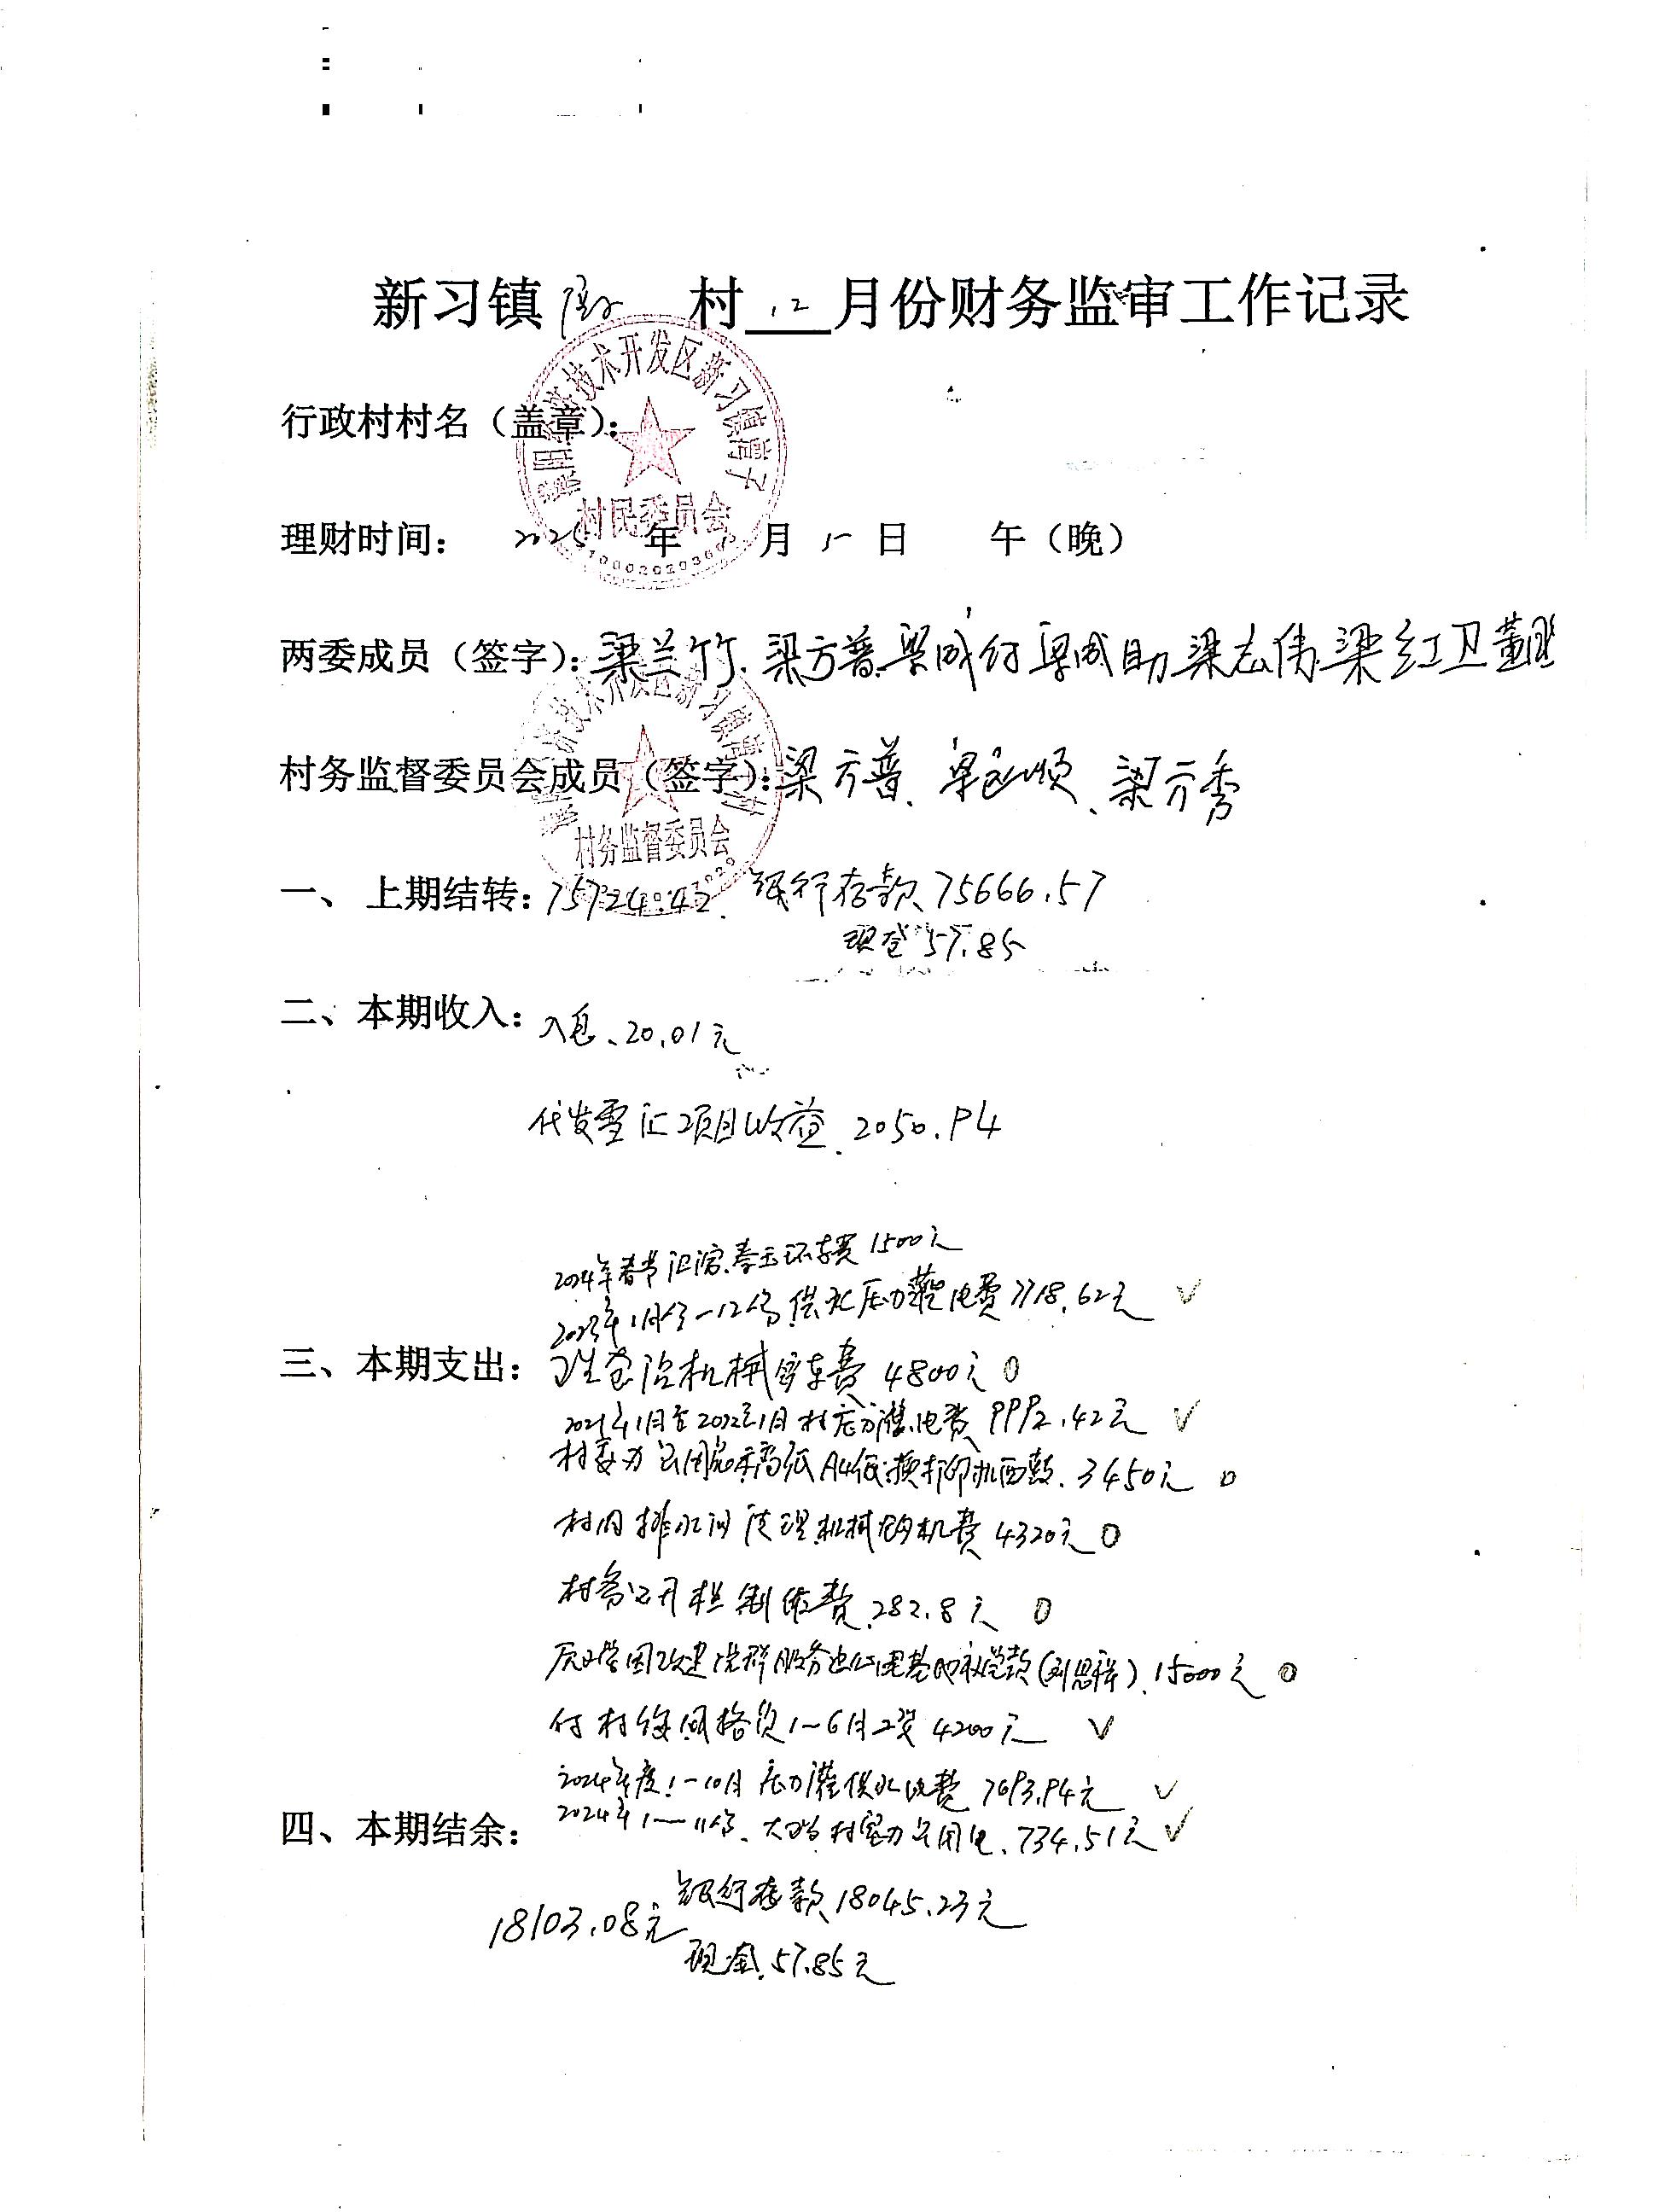 新习镇 村 12 月份财务监审工作记录
技术开发区新习镇高子
村民委员会
行政村村名（盖章）：
理财时间： 2025 年 月 15 日 午（晚）
两委成员（签字）：梁兰竹、梁方普 梁成付 梁成自力 梁志伟 梁红卫 董
村务监督委员会成员（签字）：梁方普、梁 顺、梁方秀
技术开发区新习镇高
村务监督委员会
一、 上期结转：75724.42 银行存款 75666.57
现金 57.85
二、本期收入：入息、20.01元
代发 汇项目收益 2050.94
2024年春节汇演 李玉环 1500元
2023年1月份-12份供水压力罐电费7718.62元 √
三、本期支出： 机械 车费 4800元 0
2021年1月至2022年1月村压力罐电费 9992.42元 √
村委办公用 纸 A4纸 换打印机 鼓. 3450元 0
村内排水沟清理机械 机费 4320元 0
村务公开栏制作费 282.8元 0
改建党群服务 款( ). 15000元 0
付村级网格员1~6月工资 4200元 √
2024年度1-10月压力罐供水电费 7693.94元 √
四、本期结余： 2024年1—11份、 村室办公用电、734.51元 √
18103.08元 银行存款 18045.23元
现金、57.85元